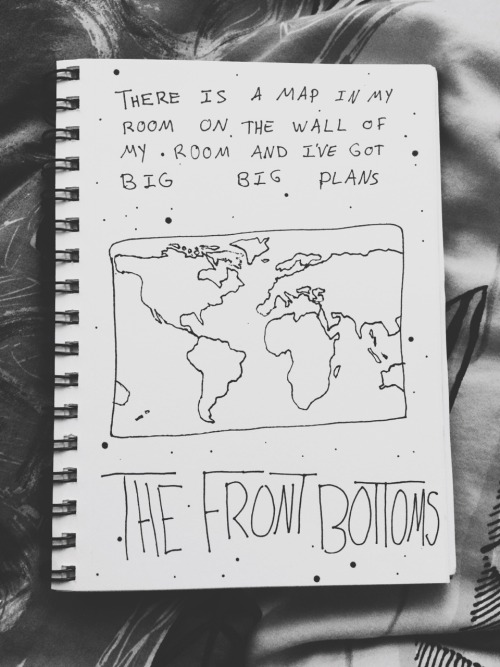 THERE IS A MAP IN MY
ROOM ON THE WALL OF
MY ROOM AND I'VE GOT
BIG BIG PLANS
THE FRONT BOTTOMS